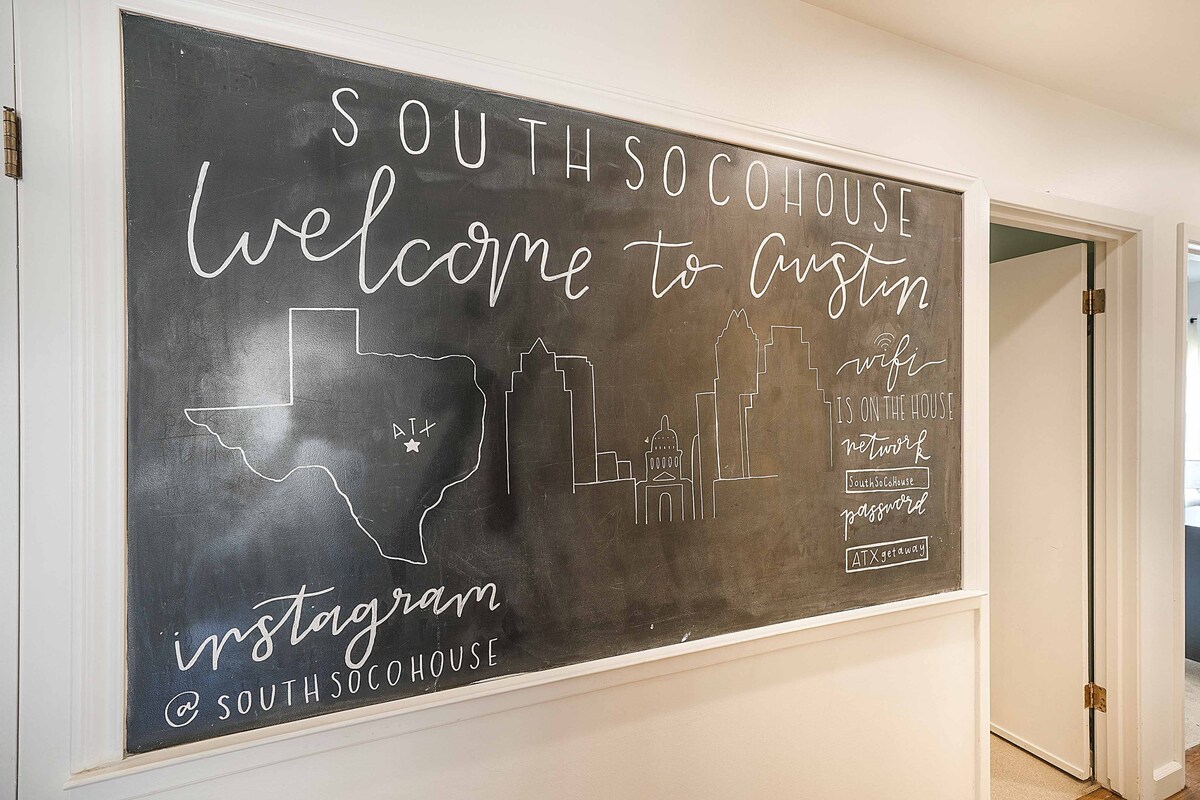 SOUTH SOCOHOUSE
Welcome to Austin
ATX
wifi
IS ON THE HOUSE
network
SouthSoCoHouse
password
ATXgetaway
instagram
@SOUTHSOCOHOUSE